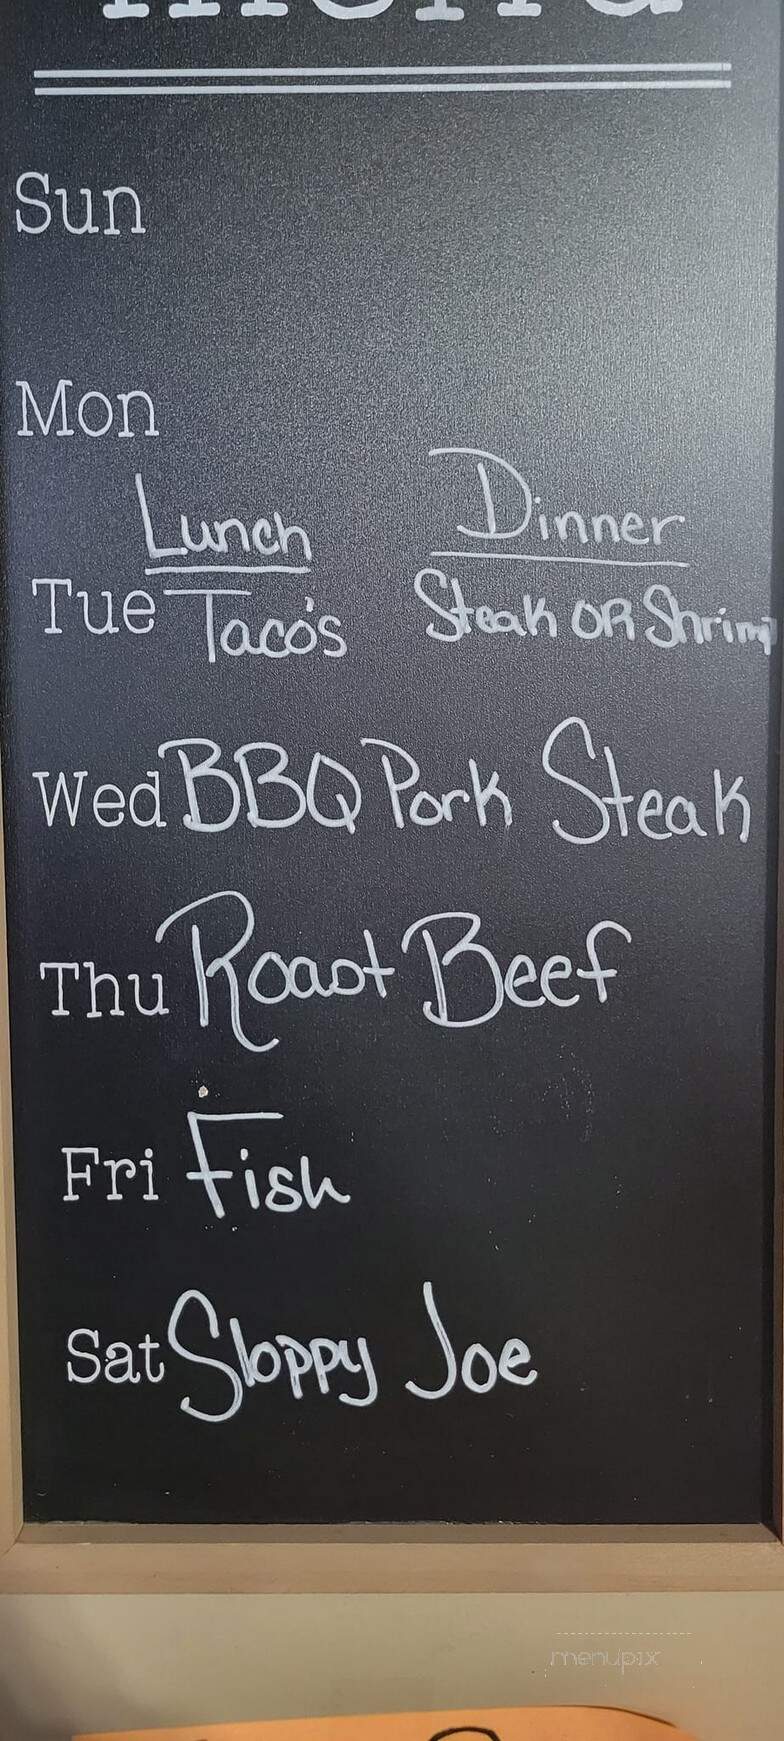 menu
Sun
Mon
Lunch Dinner
Tue Taco's Steak OR Shrimp
Wed BBQ Pork Steak
Thu Roast Beef
Fri Fish
Sat Sloppy Joe
menupix